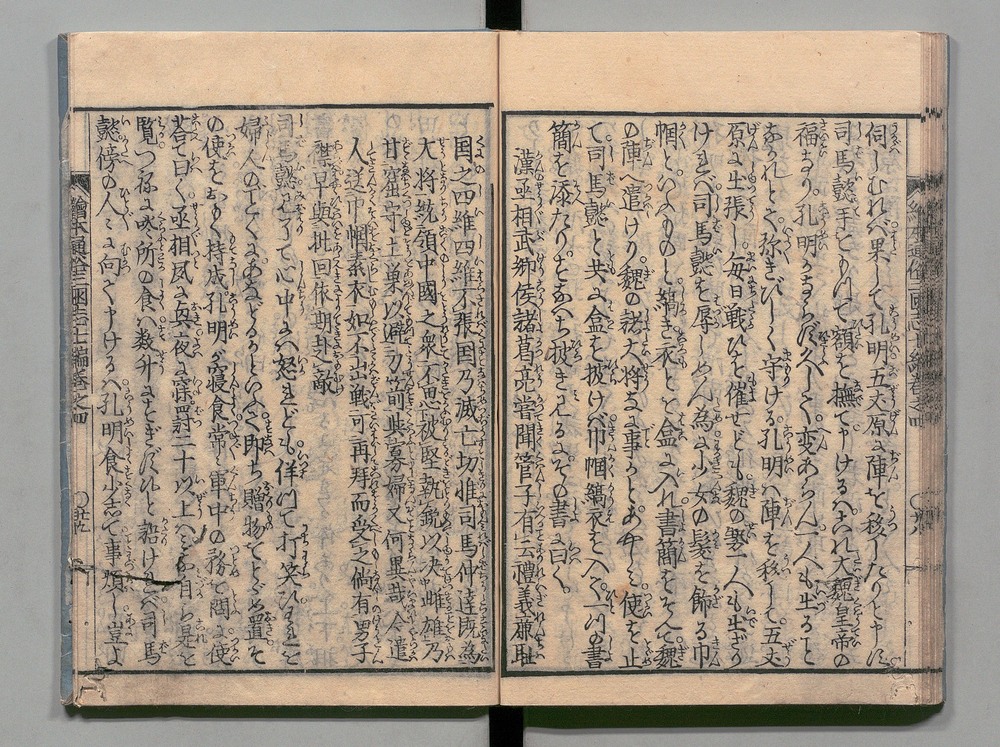 伺しむれバ果して孔明五丈原に陣を移したりと申す
司馬懿手をもつて額を撫て申けるハこれ大魏皇帝の
福なり孔明かならず久しくして変あらん一人も生ると
なかれとて弥きびしく守ける孔明ハ陣を移して五丈
原に出張し毎日戦ひを催せども魏の勢一人も出ざり
けれバ司馬懿を辱しめん為に少女の髪を飾る巾
幗といふものと縞き衣とを盒に入れ書簡をそへて魏
の陣へ遣けり魏の諸大将
て司馬懿と共に盒を披けバ巾幗縞衣を入て一つの書
簡を添たりすなハち披き見るにその書に曰く
漢丞相武郷侯諸葛亮嘗聞管子有云禮義廉耻
国之四維四維不張国乃滅亡切惟司馬仲達既為
大将統領中國之衆不思被堅執鋭以决雌雄乃
甘窟守土巣以避刀箭此寡婦又何異哉今遣
人送巾幗素衣如不出戦可再拜而受之倘有男子
襟早與批回依期赴敵
司馬懿見了て心中にハ怒れども佯りて打笑ひわれを
婦人のごとくにおもへるかといふて即ち贈物をとゞめ置そ
の使をおもく持成孔明が寝食常と軍中の務を問に使
荅て曰く丞相夙に興夜に寐罸二十以上ハミな自ら是を
覧つ給ふ所の食ハ数升にすぎずと語けれバ司馬
懿傍の人々に向て申けるハ孔明食少して事煩し豈よ
繪本通俗三國志七編巻之四